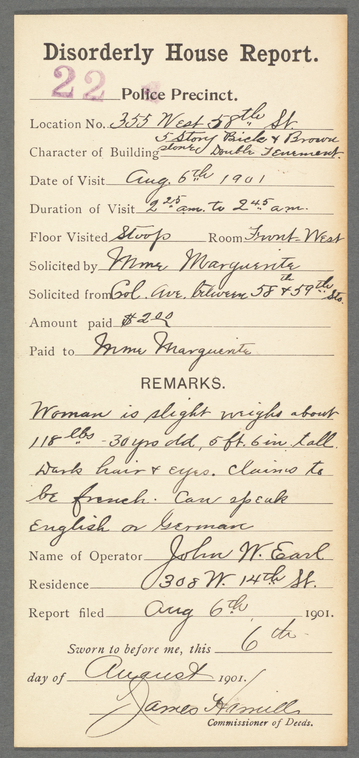 Disorderly House Report.
22
Police Precinct.
Location No. 355 West 58th St.
5 Story Brick & Brown
Character of Building stone Double Tenement.
Date of Visit Aug. 6th 1901
Duration of Visit 2 25 am. to 2 45 am.
Floor Visited Stoop Room Front West
Solicited by Mme Marguerite
Solicited from Col. Ave. between 58th & 59th Sts.
Amount paid $2.00
Paid to Mme Marguerite
REMARKS.
Woman is slight weighs about
118 lbs - 30 yrs old, 5 ft. 6 in. tall.
Dark hair & eyes. Claims to
be french. Can speak
English or German
Name of Operator John W. Earl
Residence 308 W 14th St.
Report filed Aug 6th 1901.
Sworn to before me, this 6th
day of August 1901.
James Hamill
Commissioner of Deeds.